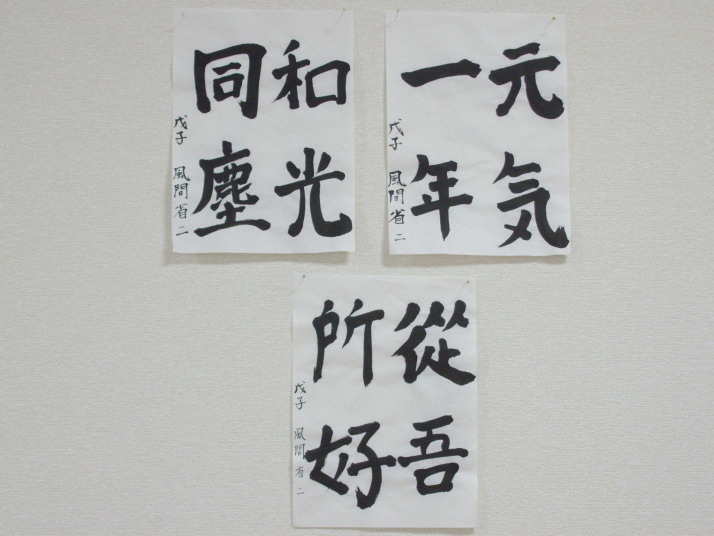 元気
一年
戊子 風間省二
和光
同塵
戊子 風間省二
從吾
所好
戊子 風間省二